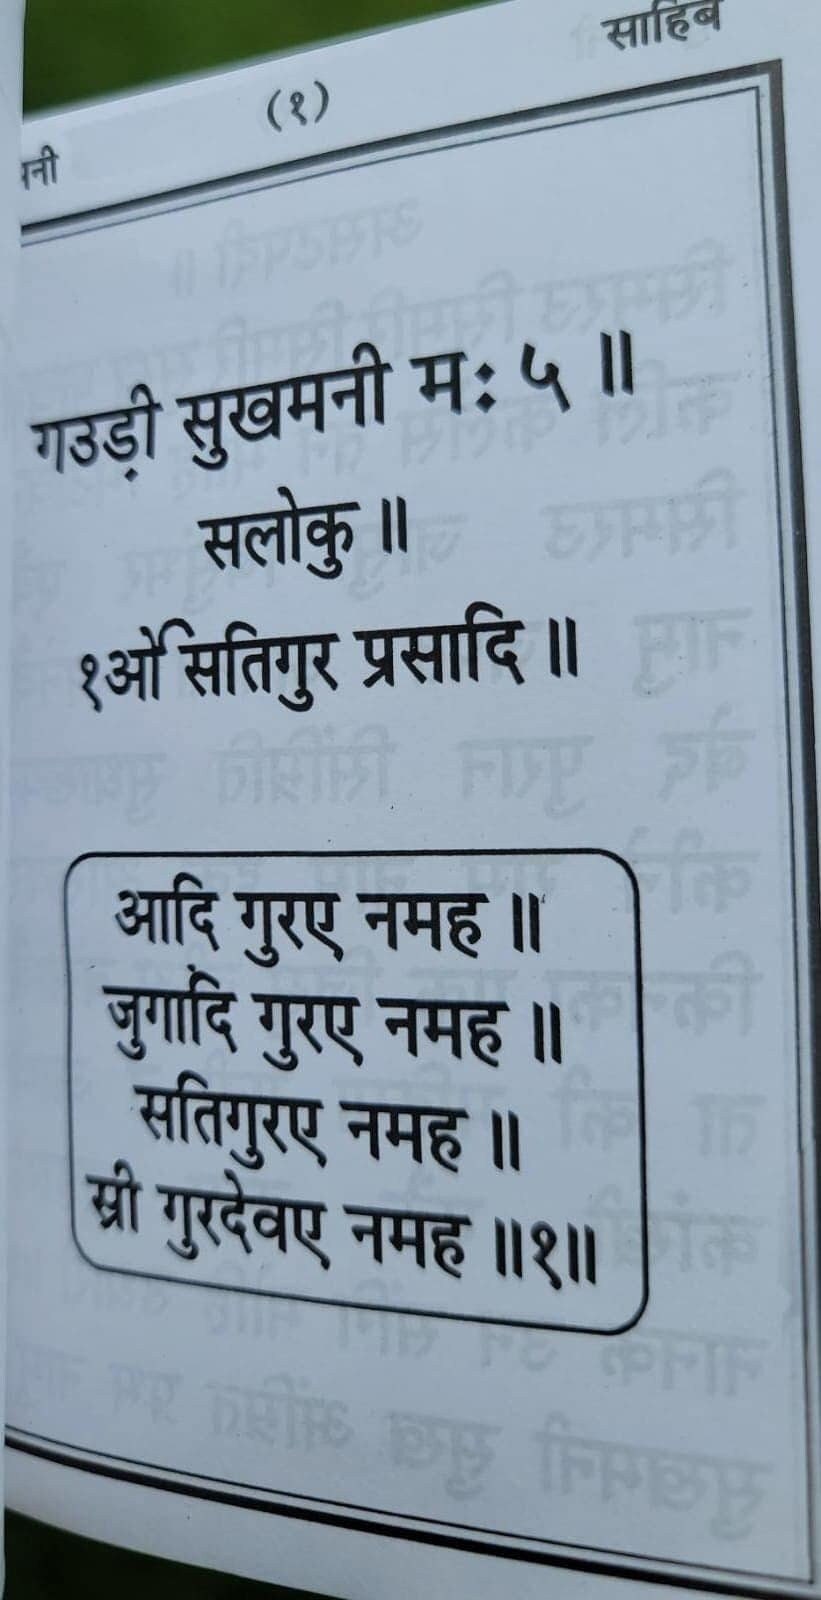 साहिब
(१)
गउड़ी सुखमनी मः ५ ॥
सलोकु ॥
१ओं सतिगुर प्रसादि ॥
आदि गुरए नमह ॥
जुगादि गुरए नमह ॥
सतिगुरए नमह ॥
स्री गुरदेवए नमह ॥१॥